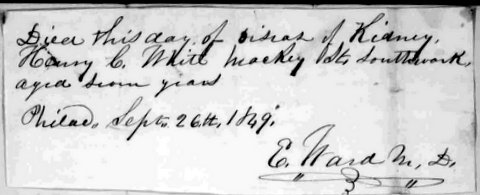 Died this day of diseas of Kidney,
Henry C. White Mackey St. Southwark,
aged seven years
Philad. Sept. 26th, 1849.
E. Ward M. D.